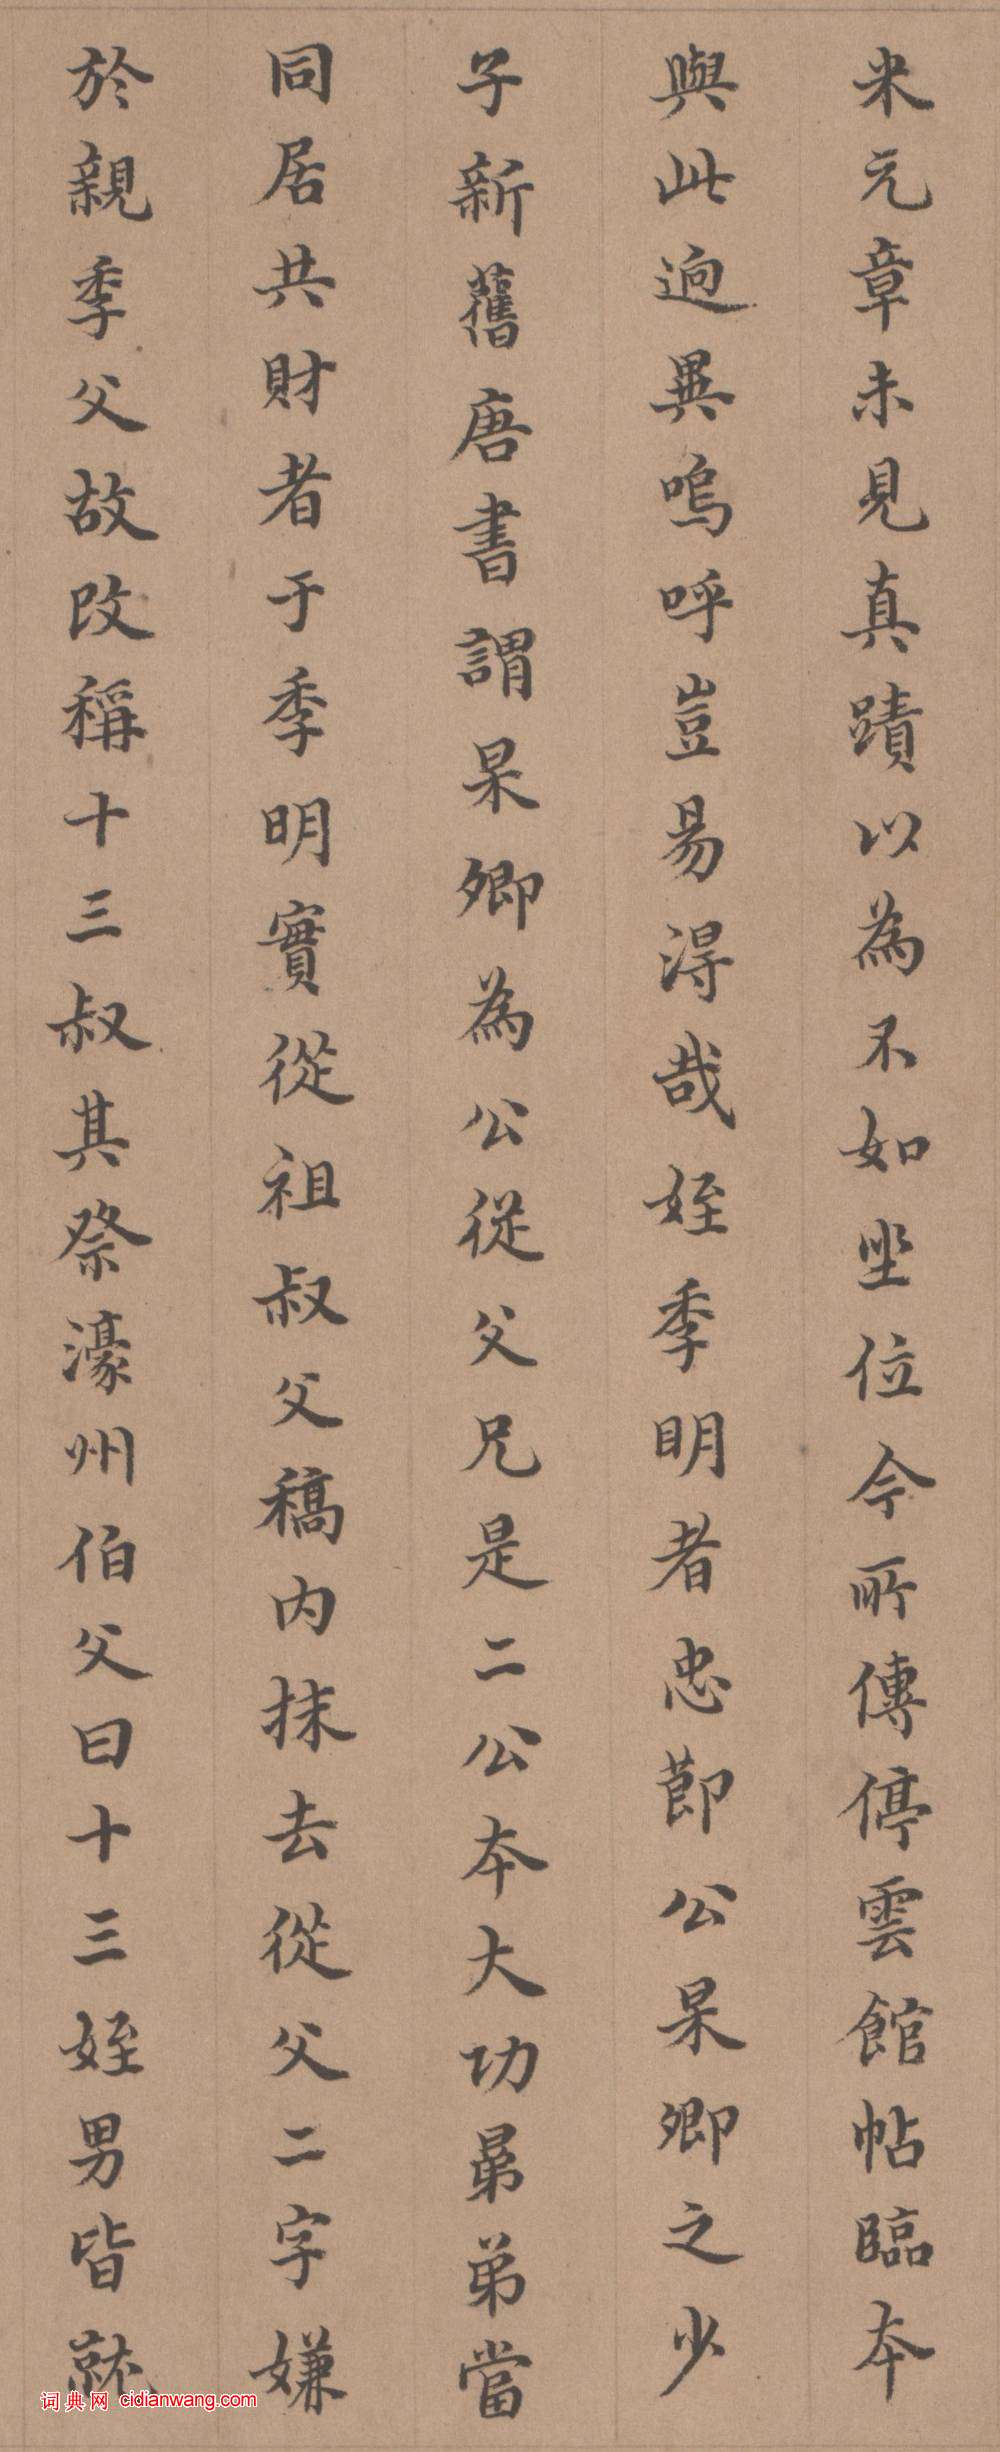 米元章未見真蹟以為不如坐位今所傳停雲館帖臨本
與此逈異嗚呼豈易得哉姪季明者忠節公杲卿之少
子新舊唐書謂杲卿為公從父兄是二公本大功晜弟當
同居共財者于季明實從祖叔父稿内抹去從父二字嫌
於親季父故改稱十三叔其祭濠州伯父曰十三姪男皆就
词典网 cidianwang.com